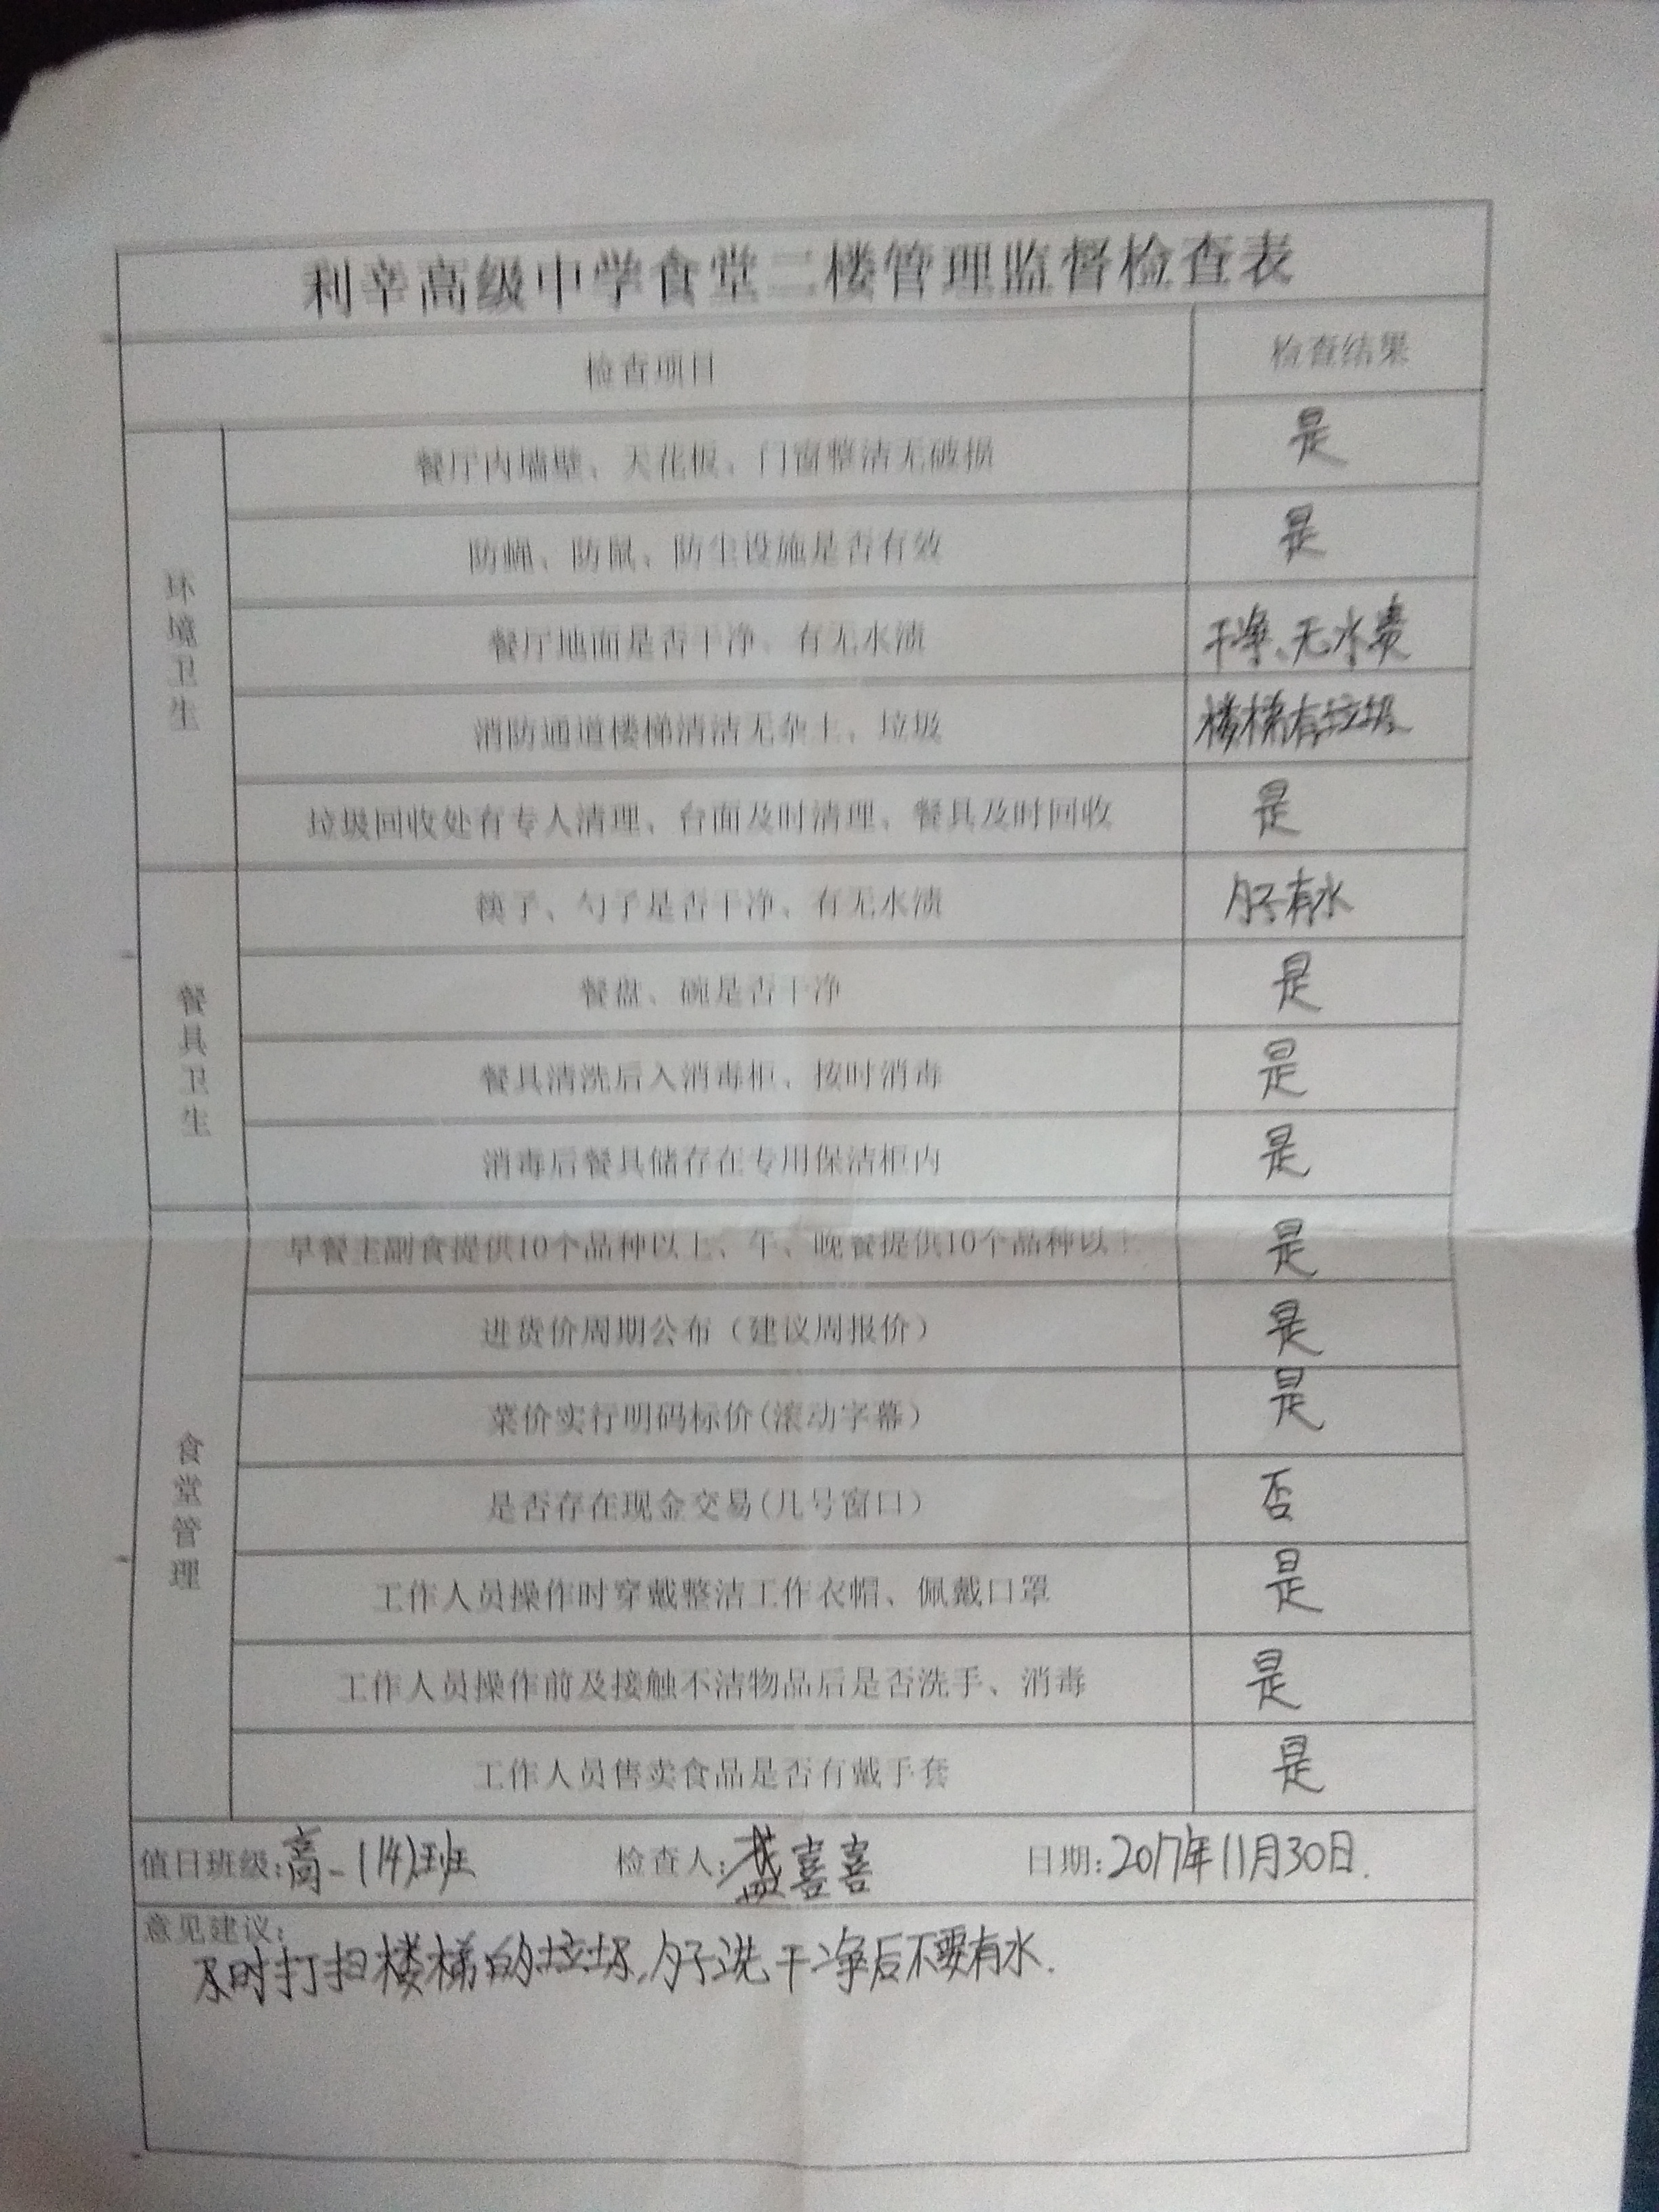 利辛高级中学食堂二楼管理监督检查表
检查项目 检查结果
环境卫生
餐厅内墙壁、天花板、门窗整洁无破损 是
防蝇、防鼠、防尘设施是否有效 是
餐厅地面是否干净、有无水渍 干净、无水责
消防通道楼梯清洁无杂土、垃圾 楼梯有垃圾
垃圾回收处有专人清理、台面及时清理、餐具及时回收 是
餐具卫生
筷子、勺子是否干净、有无水渍 勺子有水
餐盘、碗是否干净 是
餐具清洗后入消毒柜、按时消毒 是
消毒后餐具储存在专用保洁柜内 是
食堂管理
早餐主副食提供10个品种以上、午、晚餐提供10个品种以上 是
进货价周期公布（建议周报价） 是
菜价实行明码标价(滚动字幕) 是
是否存在现金交易(几号窗口) 否
工作人员操作时穿戴整洁工作衣帽、佩戴口罩 是
工作人员操作前及接触不洁物品后是否洗手、消毒 是
工作人员售卖食品是否有戴手套 是
值日班级:高一(14)班 检查人:盛喜喜 日期:2017年11月30日.
意见建议:
及时打扫楼梯的垃圾,勺子洗干净后不要有水.